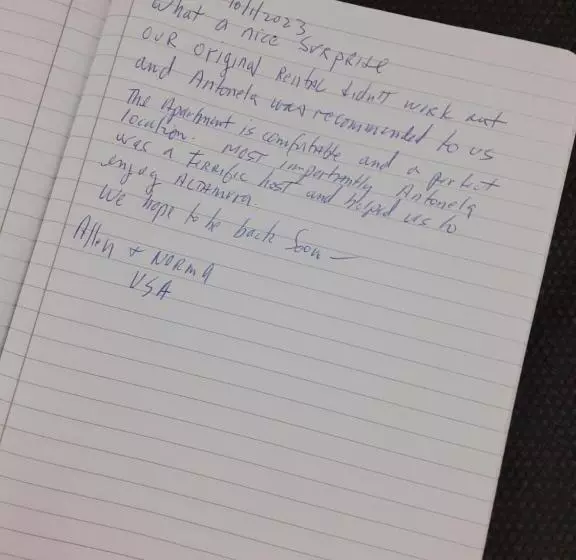 10/1/2023
What a nice SURPRISE
OUR ORIGINAL RENTAL didn't WORK out
and Antonela was recommended to us
The Apartment is comfortable and a perfect
location. MOST Importantly Antonela
was a TERRIFIC host and helped us to
enjoy ALTAMURA.
We hope to be back Soon —
Allen + NORMA
USA